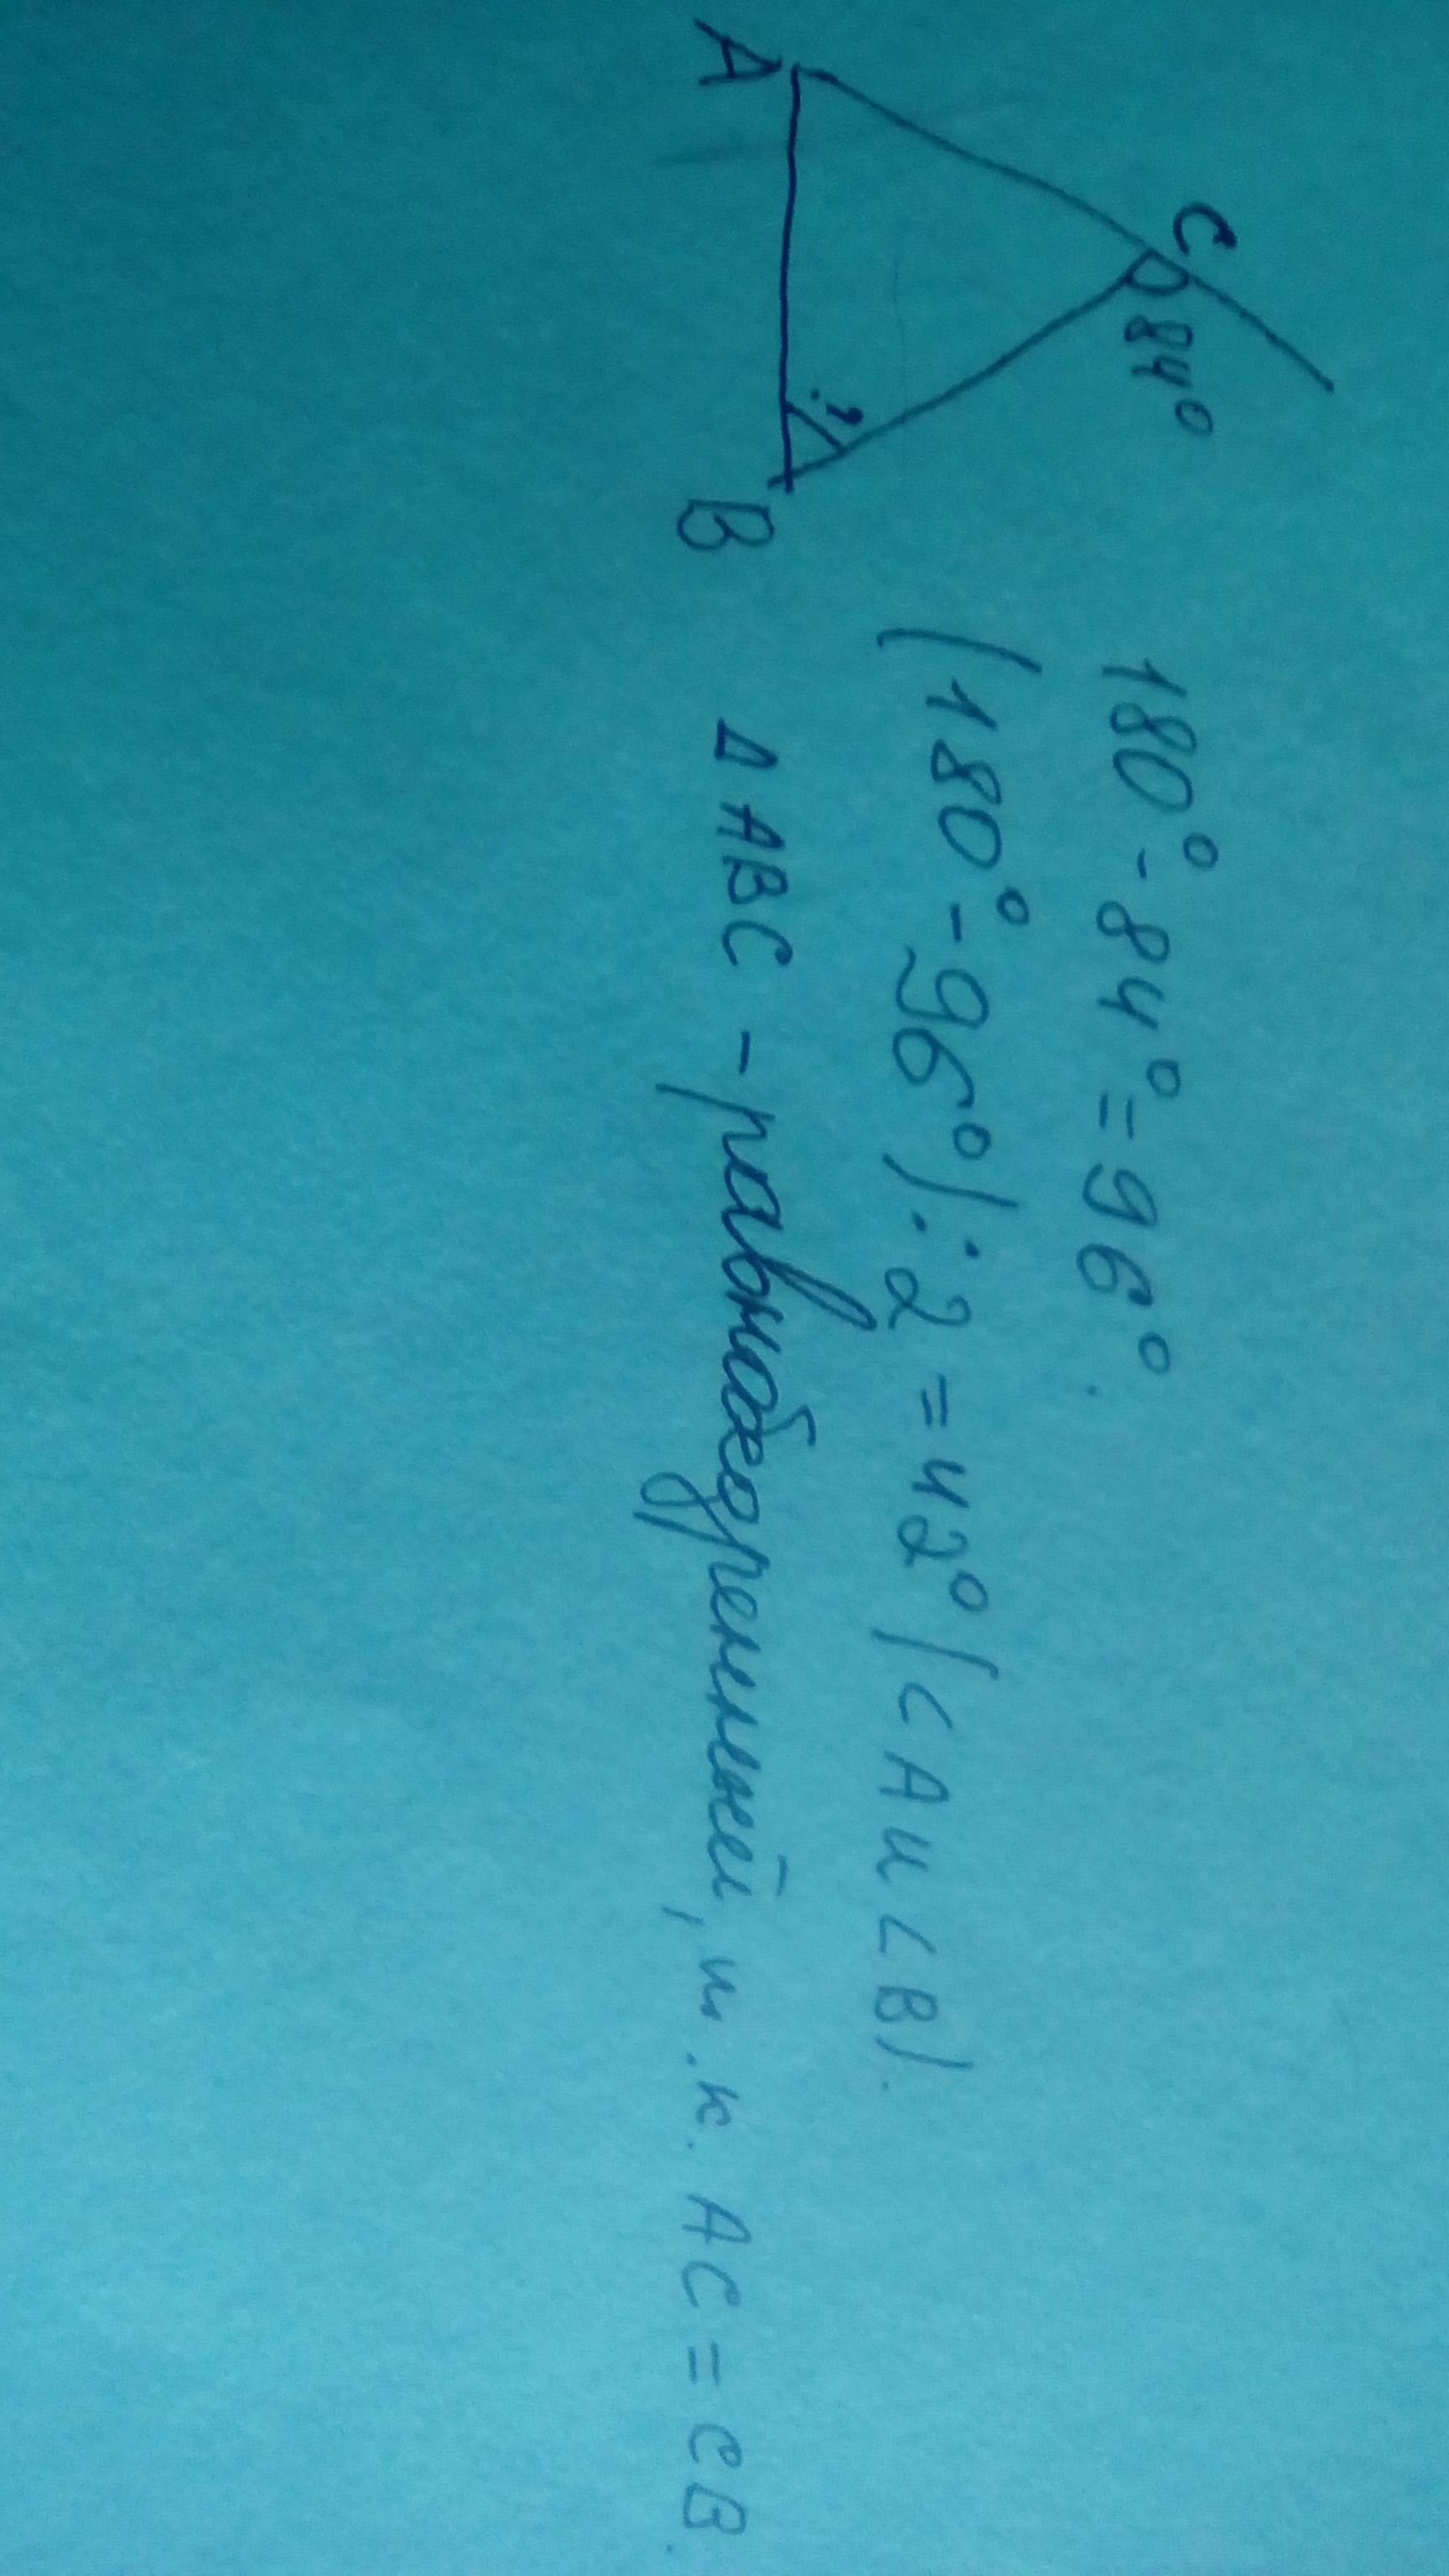 C
84°
A
?
B
180° - 84° = 96°.
(180° - 96°) : 2 = 42° (∠A и ∠B).
Δ ABC - равнобедренный, т.к. AC = CB.